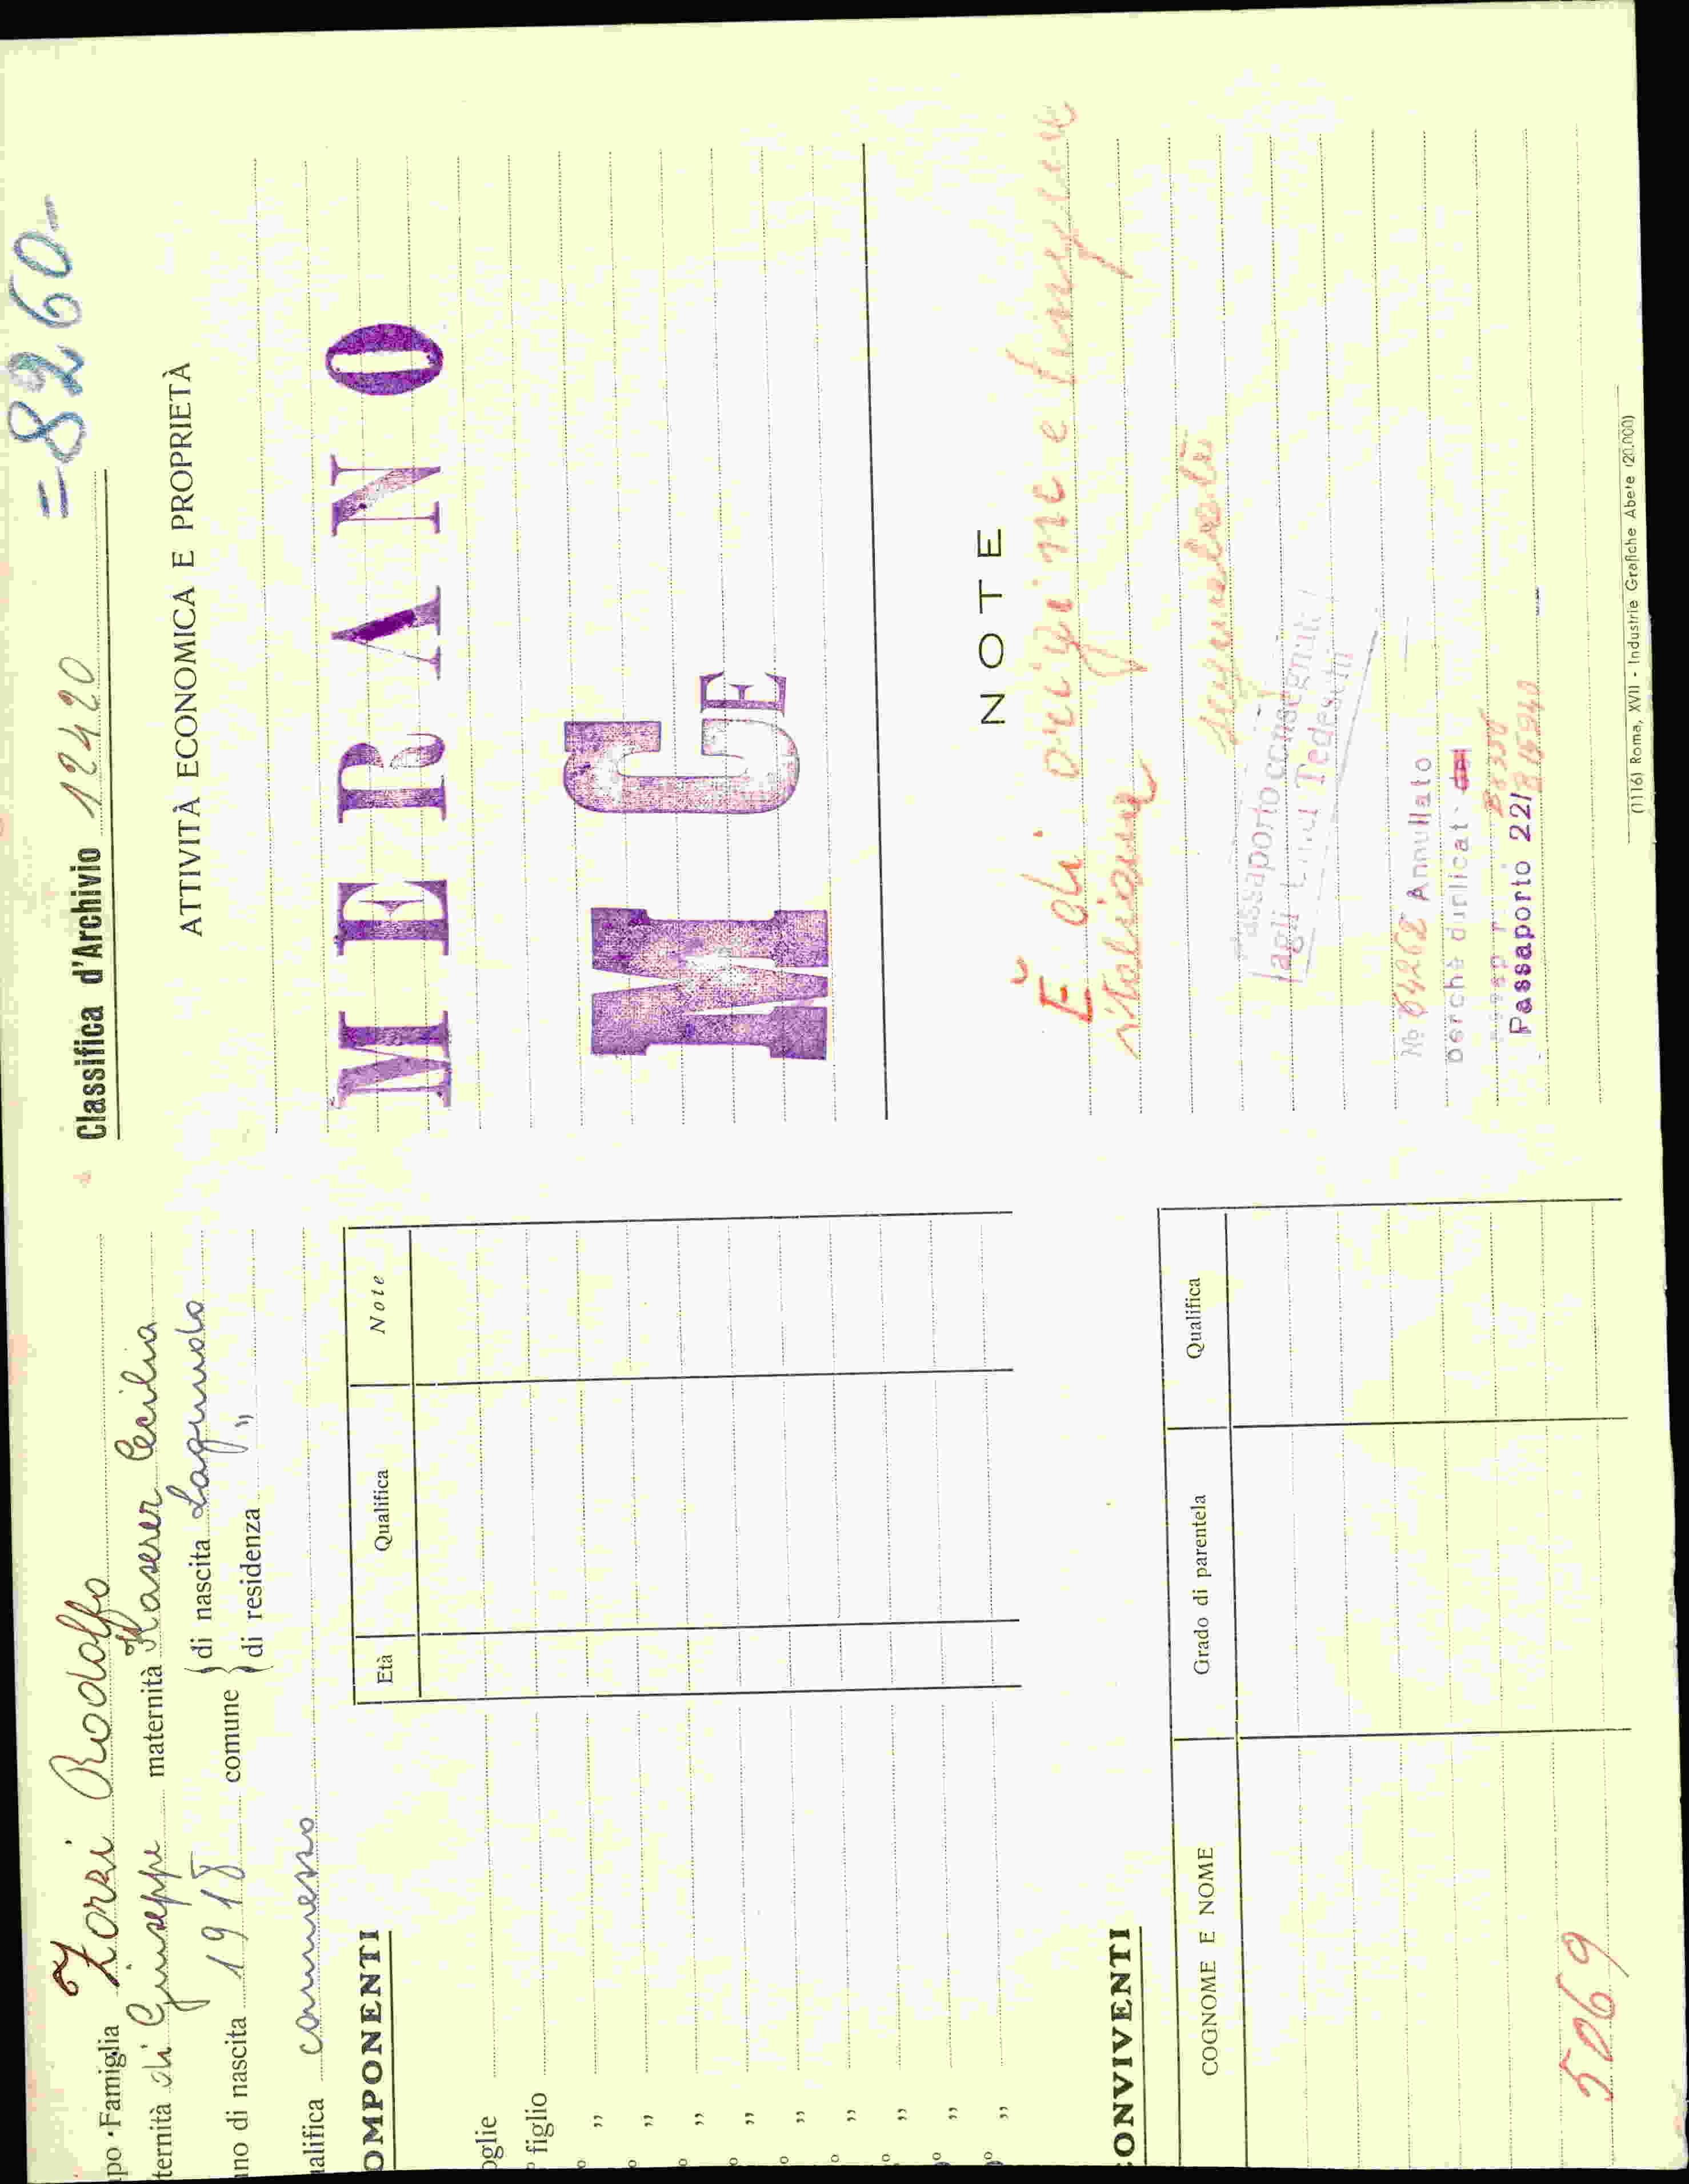 Classifica d'Archivio 12420 =8260-
apo Famiglia Zorzi Rodolfo
ternità di Giuseppe maternità Haserer Cecilia
no di nascita 1918 comune } di nascita Lagundo
} di residenza "
ualifica commesso
OMPONENTI
Età Qualifica Note
oglie
figlio
"
"
"
"
"
"
"
"
"
CONVIVENTI
COGNOME E NOME Grado di parentela Qualifica
5069
ATTIVITÀ ECONOMICA E PROPRIETÀ
MERANO
M GE
NOTE
È di origine e lingua
italiana
Passaporto consegnato
agli Tedeschi
No 64262 Annullato
perchè duplicat
Passaporto 22/
(1116) Roma, XVII - Industrie Grafiche Abete (20.000)